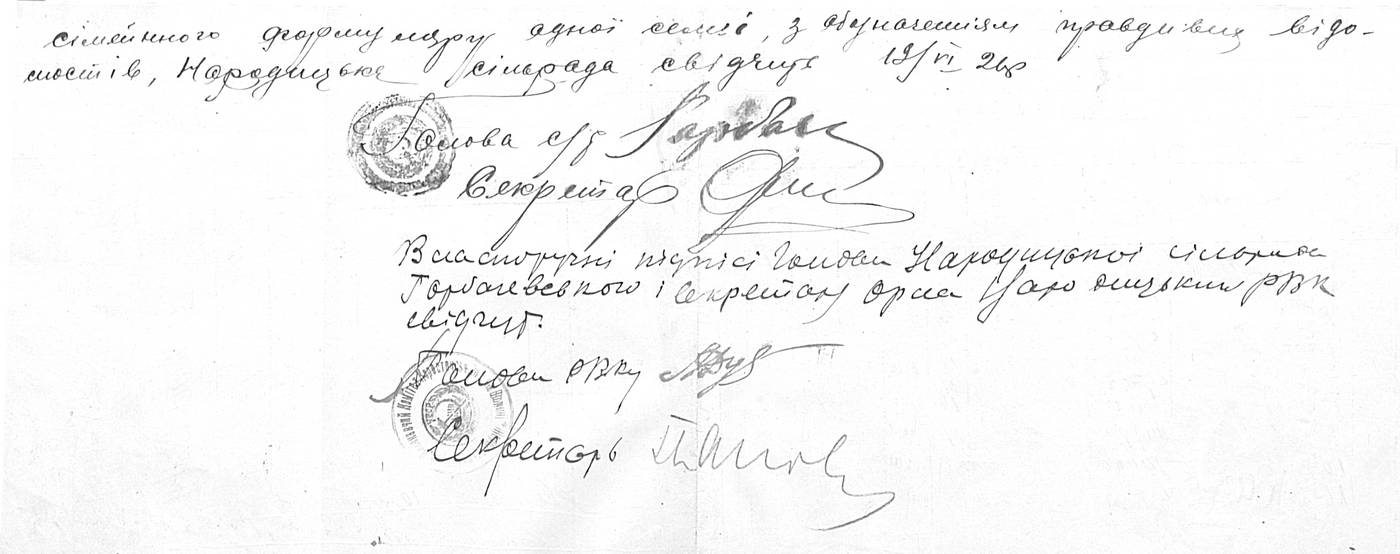 сімейнного формуляру одної семьї, з обозначенням правдивих відо-
мостів, Народицька сільрада свідчить 19/VI 26р
Голова с/р
Секретар
Власноручні підпісі Голови Народицької сільради
Горбачевського і секретаря Орла Народицьким РВК
свідчут.
Голова РВКу
Секретарь